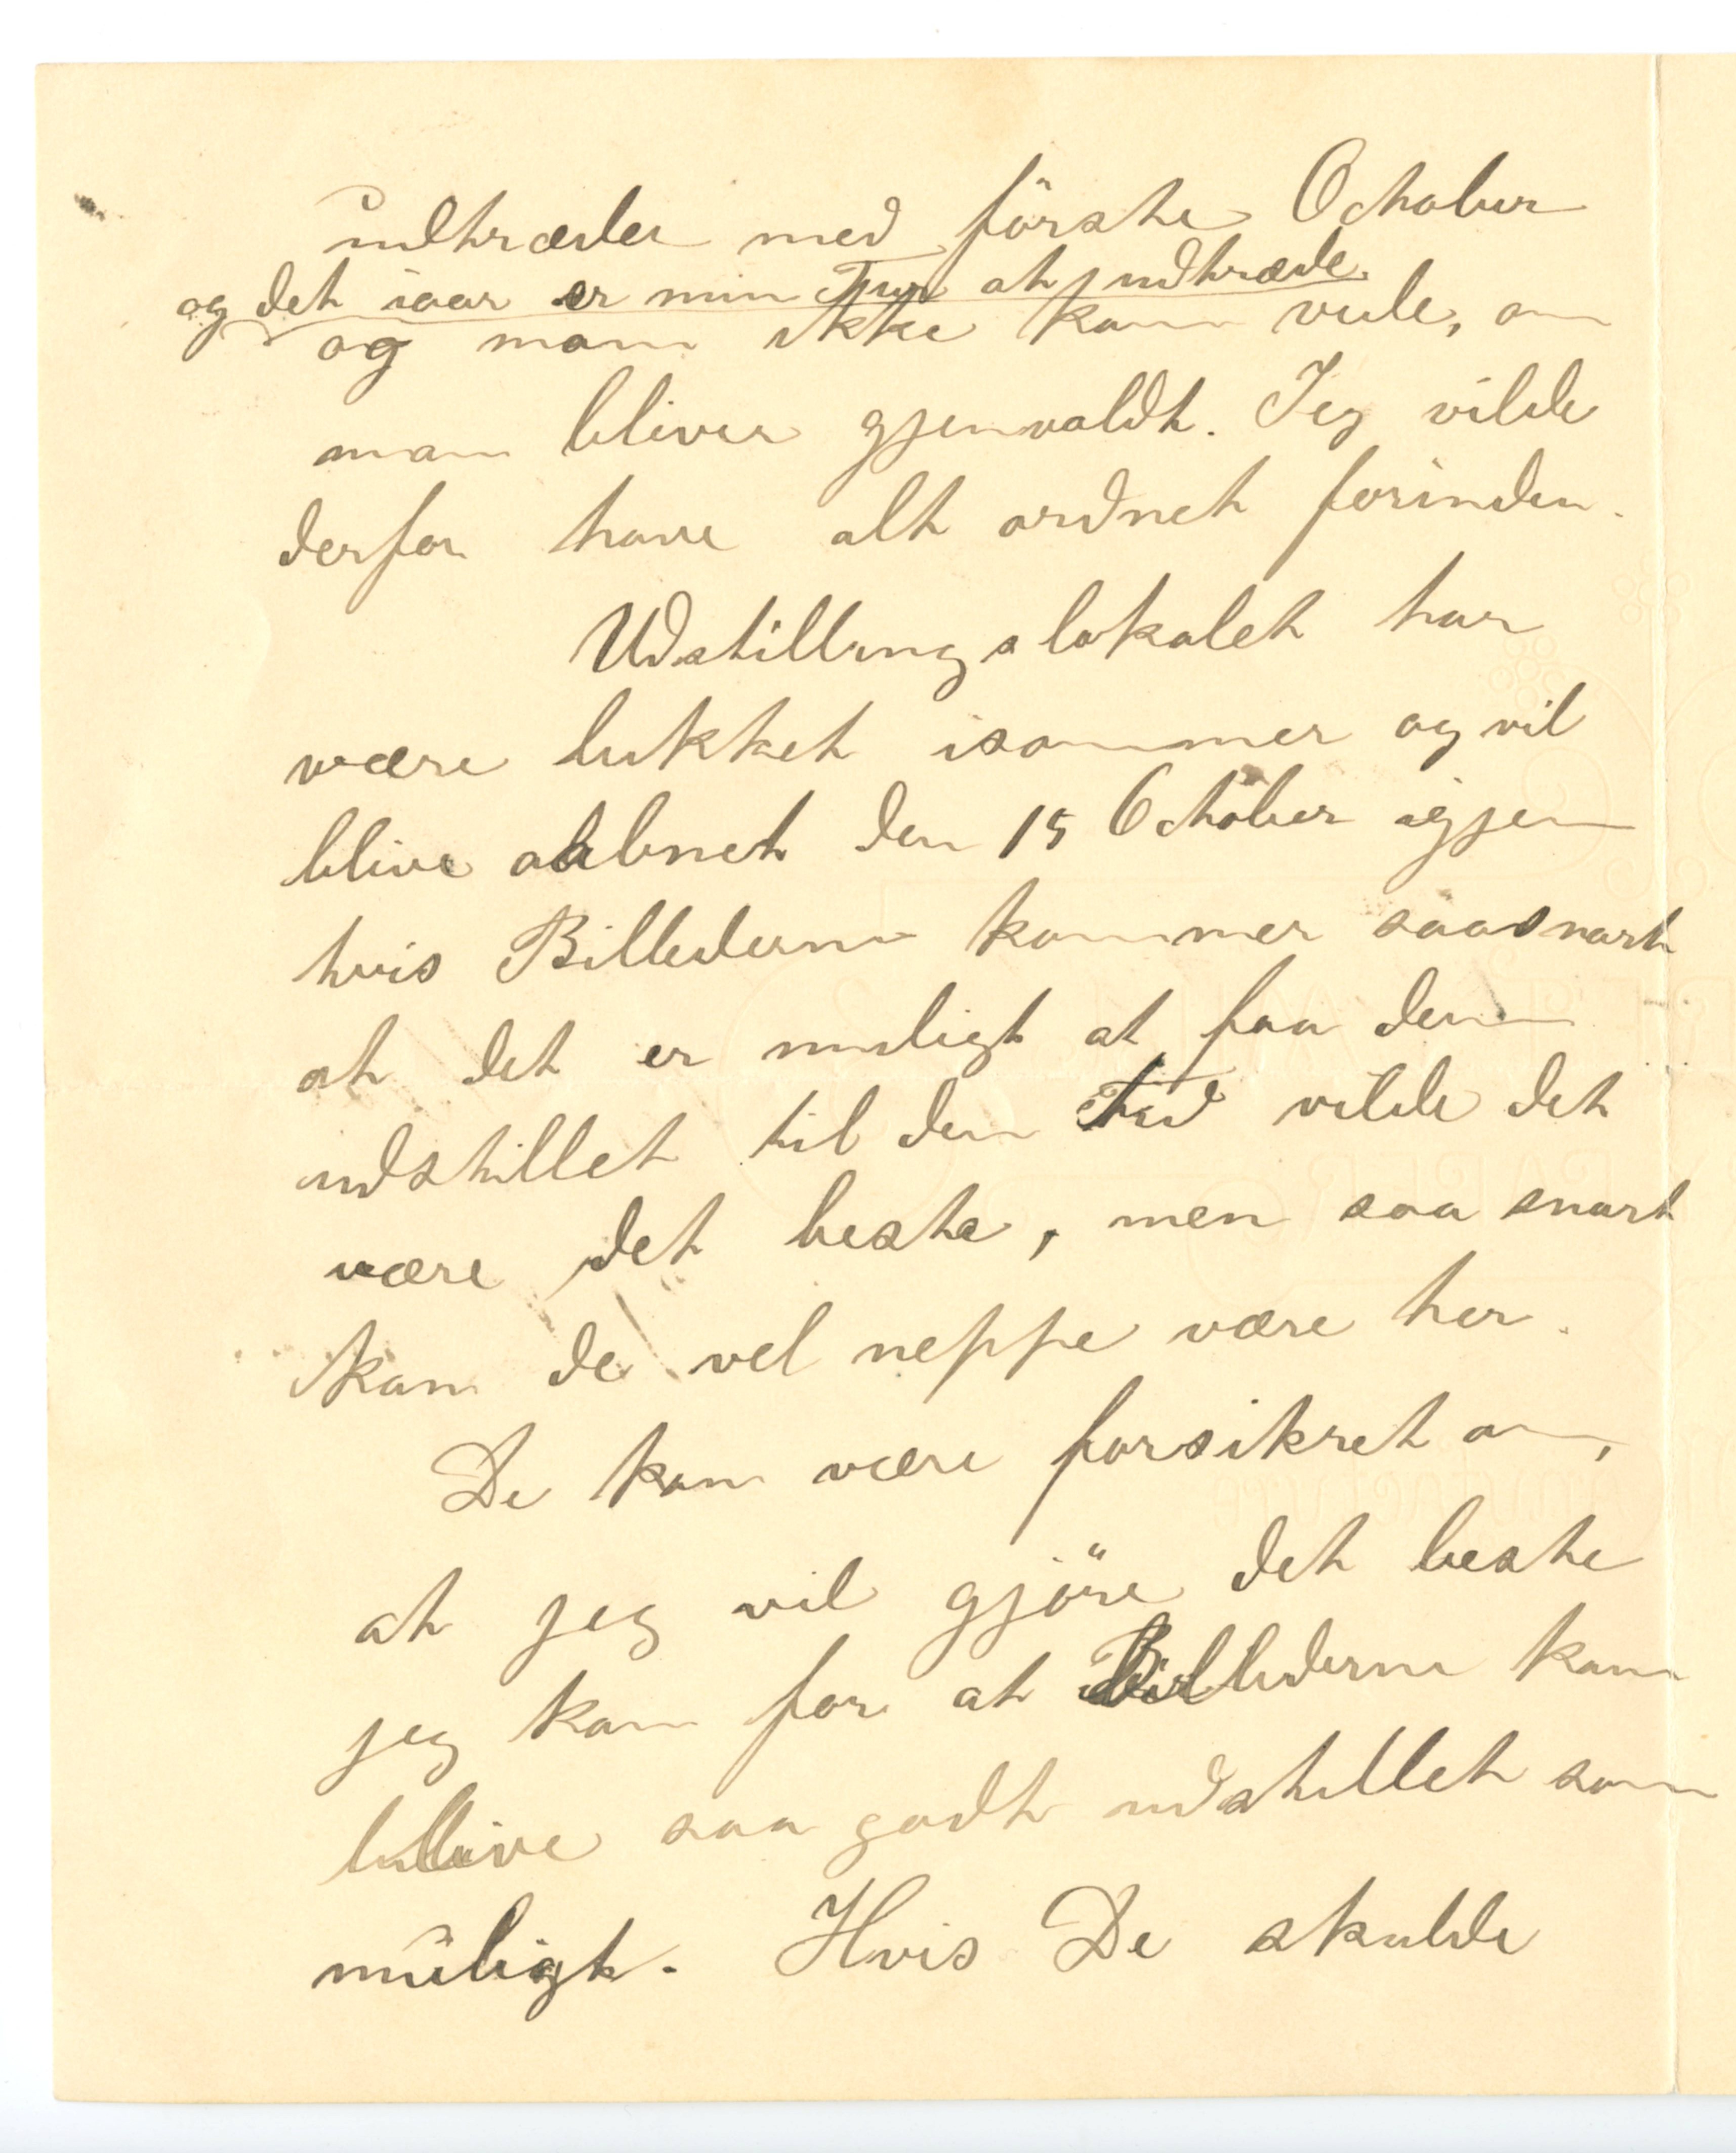 udtræder med förste October
og det iaar er min Tur at udtræde
og man ikke kan vide, om
man bliver gjenvaldt. Jeg vilde
derfor have alt ordnet forinden.
Udstillingslokalet har
være lukket isommer og vil
blive aabnet den 15 October igjen
hvis Billederne kommer saasnart
at det er muligt at faa dem
udstillet til den Tid vilde det
være det beste, men saa snart
kan de vel neppe være her.
De kan være forsikret om,
at jeg vil gjöre det beste
jeg kan for at Billederne kan
blive saa godt udstillet som
muligt. Hvis De skulde